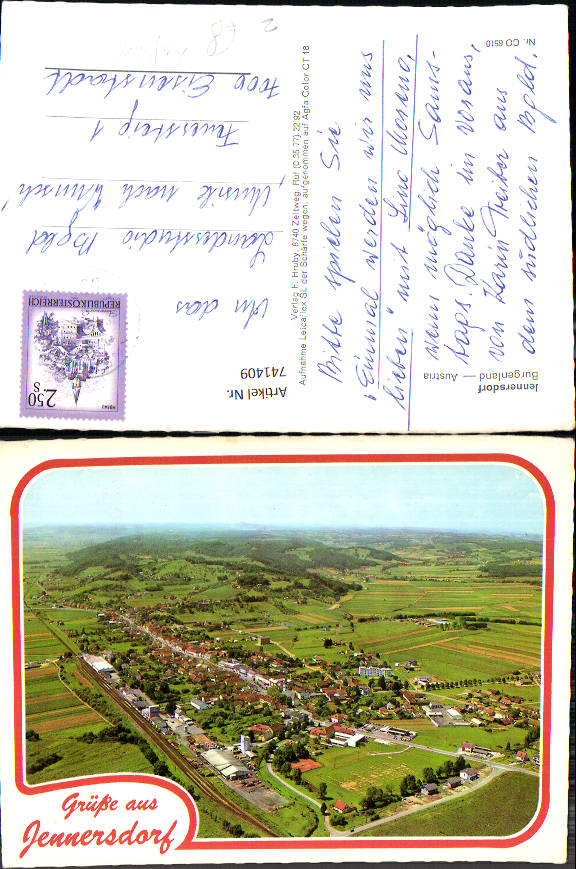 Jennersdorf
Burgenland — Austria
Nr. CO 6510
Bitte spielen Sie
"Einmal werden wir uns
lieben" mit Lino Moreno,
wenn möglich Sams-
tags. Danke im voraus,
von Karin Freiter aus
dem südlichen Bgld.
Verlag F. Hruby, 8740 Zeltweg, Ruf (0 35 77) 22 92
Aufnahme Leicaflex SL der Schärfe wegen, aufgenommen auf Agfa Color CT 18
Artikel Nr.
741409
2.50
S
REPUBLIK ÖSTERREICH
An das
Landesstudio Bgld
"Musik nach Wunsch"
1
7000 Eisenstadt
Grüße aus
Jennersdorf